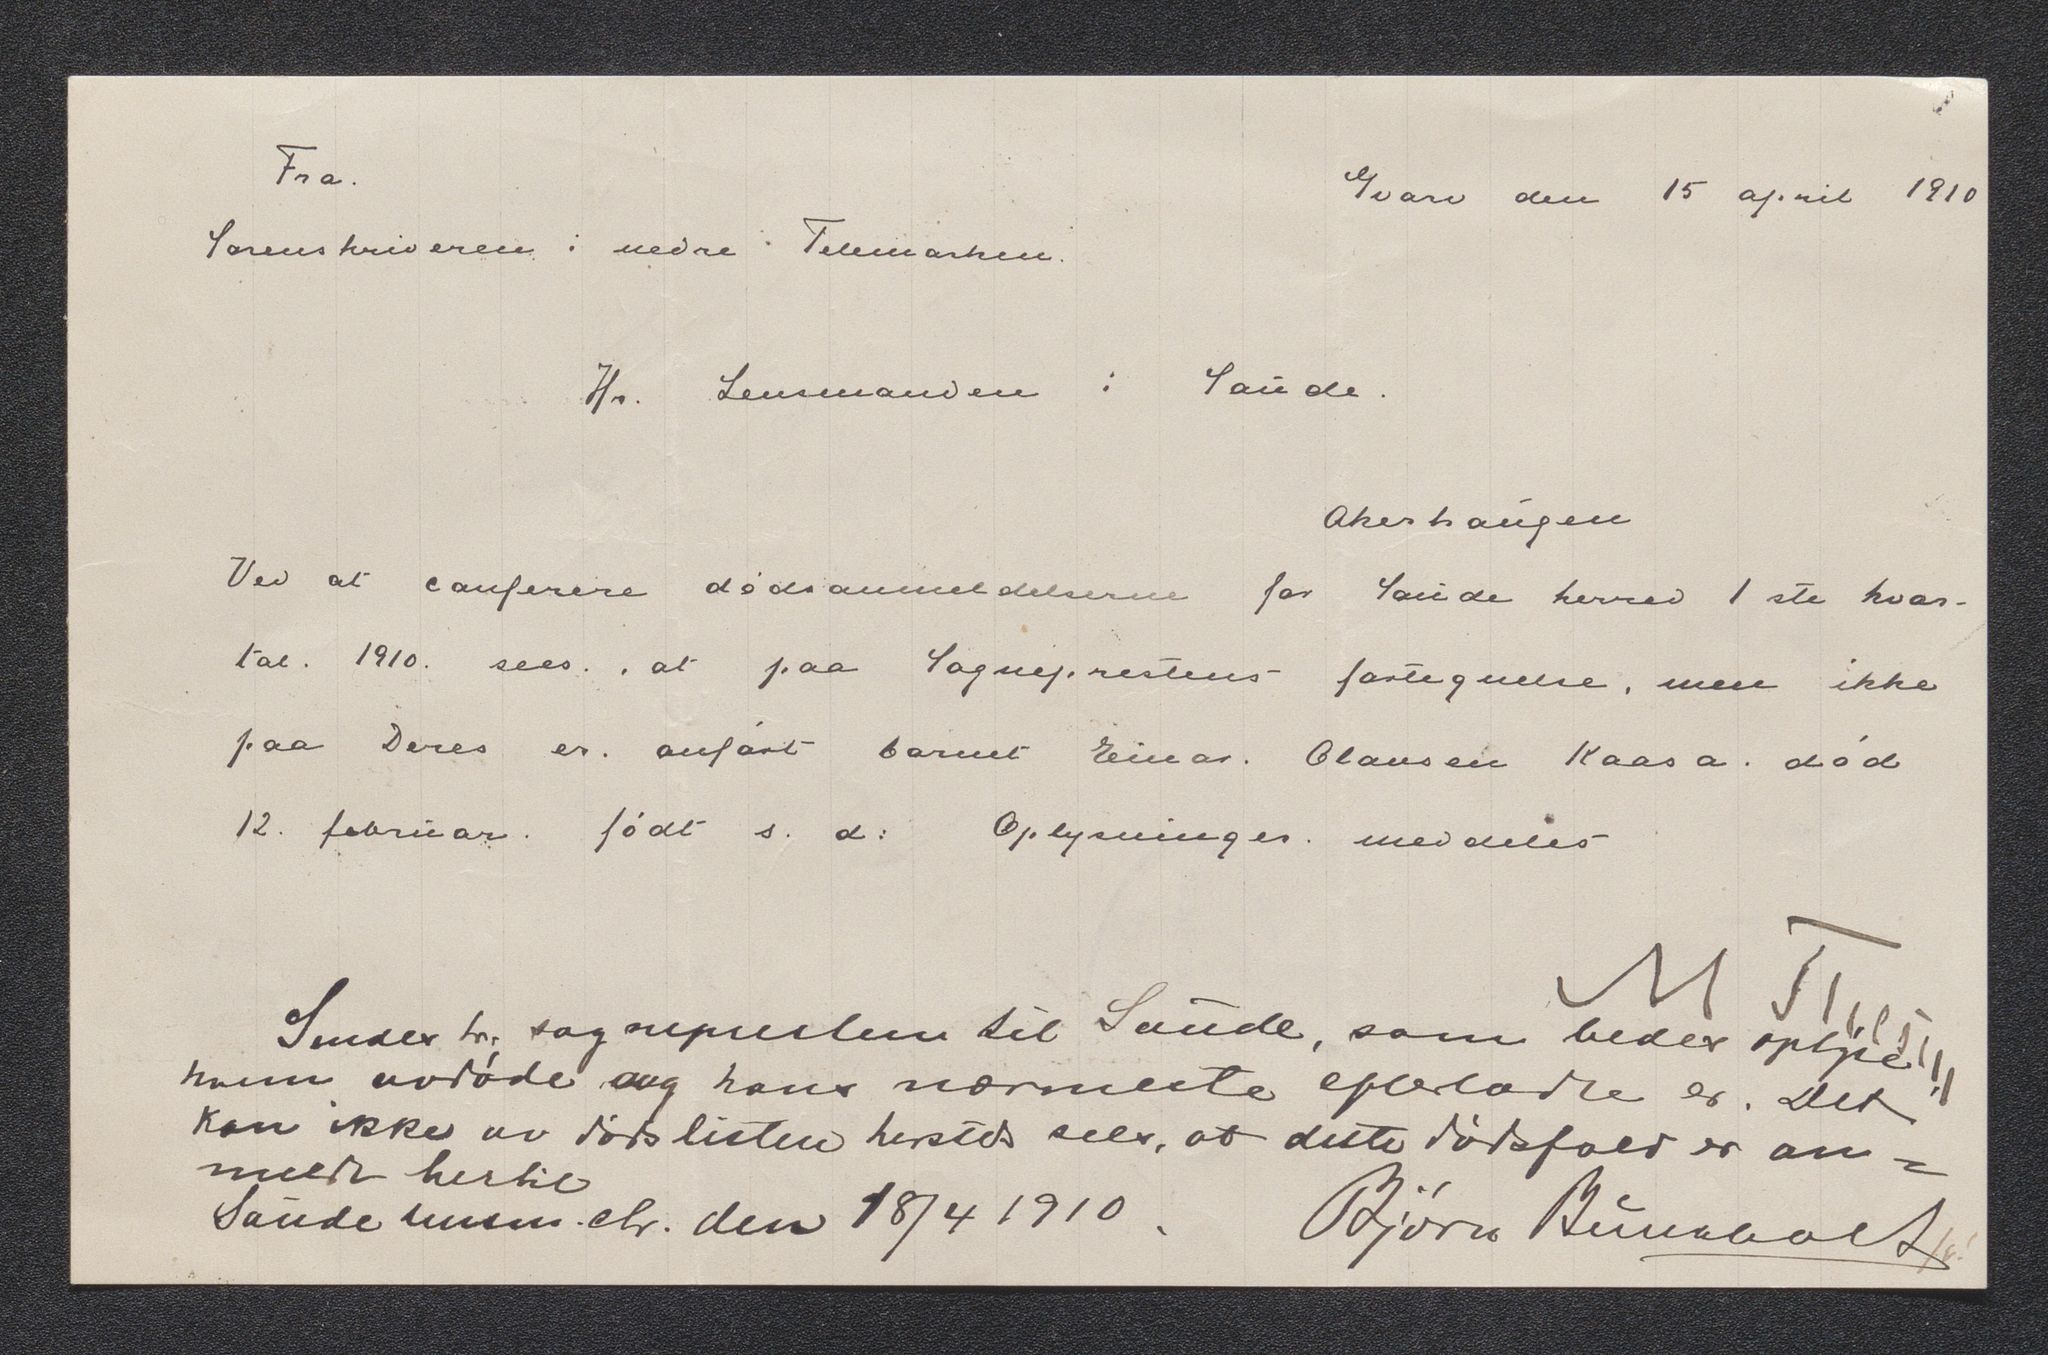 Fra.
Gvarv den 15 april 1910
Sorenskriveren i nedre Telemarken.
Hr. Lensmanden i Saude.
Akerhaugen
Ved at conferere dødsanmeldelserne for Saude herred 1ste kvar-
tal. 1910. sees., at paa Sogneprestens fortegnelse, men ikke
paa Deres er. anført barnet Einar. Olavsen Kaasa. død
12. februar. født s. d: Oplysninger. meddeles
Sendes hr. sognepresten til Saude, som bedes oplyse
hvem avdøde og hans nærmeste efterladte er. Det
kan ikke av dødslisten herstds sees, at dette dødsfald er an=
meldt hertil
Saude lensm. ctr. den 18/4 1910.
Bjørn Bunkholt